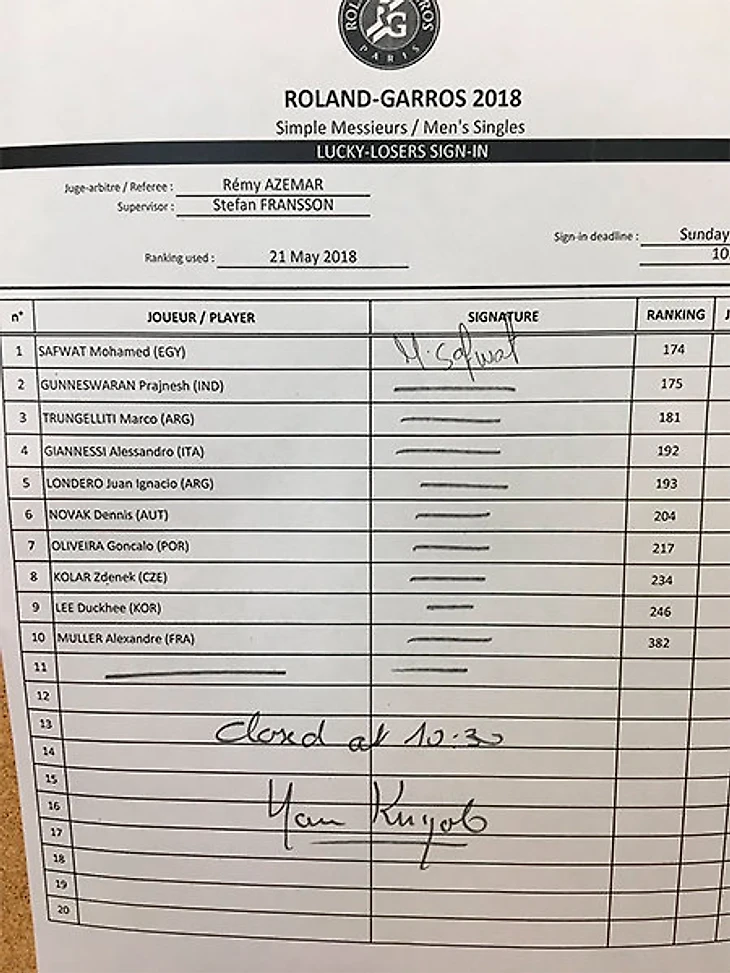 ROLAND-GARROS
PARIS
ROLAND-GARROS 2018
Simple Messieurs / Men's Singles
LUCKY-LOSERS SIGN-IN
Juge-arbitre / Referee : Rémy AZEMAR
Supervisor : Stefan FRANSSON
Sign-in deadline : Sunday
10
Ranking used : 21 May 2018
n° JOUEUR / PLAYER SIGNATURE RANKING
1 SAFWAT Mohamed (EGY) M. Safwat 174
2 GUNNESWARAN Prajnesh (IND) 175
3 TRUNGELLITI Marco (ARG) 181
4 GIANNESSI Alessandro (ITA) 192
5 LONDERO Juan Ignacio (ARG) 193
6 NOVAK Dennis (AUT) 204
7 OLIVEIRA Goncalo (POR) 217
8 KOLAR Zdenek (CZE) 234
9 LEE Duckhee (KOR) 246
10 MULLER Alexandre (FRA) 382
11
12
13
Closed at 10:30
14
15
16
17
18
19
20